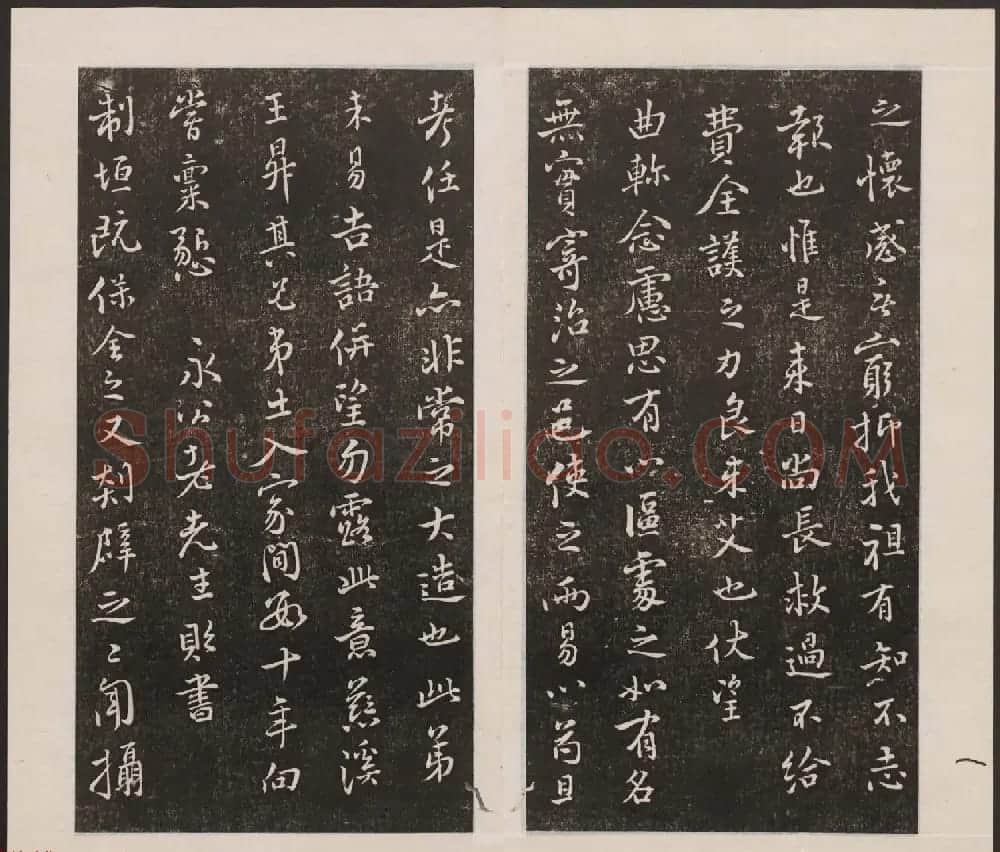 之懷感無窮抑我祖有知不忘
報也惟是來日尚長救過不給
費全護之力良未艾也伏望
曲軫念慮思有以區處之如有名
無實寄治之邑使之兩易以苟且
考任是亦非常之大造也此第
未易告語併望勿露此意慈溪
王昇其兄弟士人家間數十年向
嘗稟懇 永公老先生貽書
制垣既保全之又剡辟之之聞攝
Shufaziliao.COM